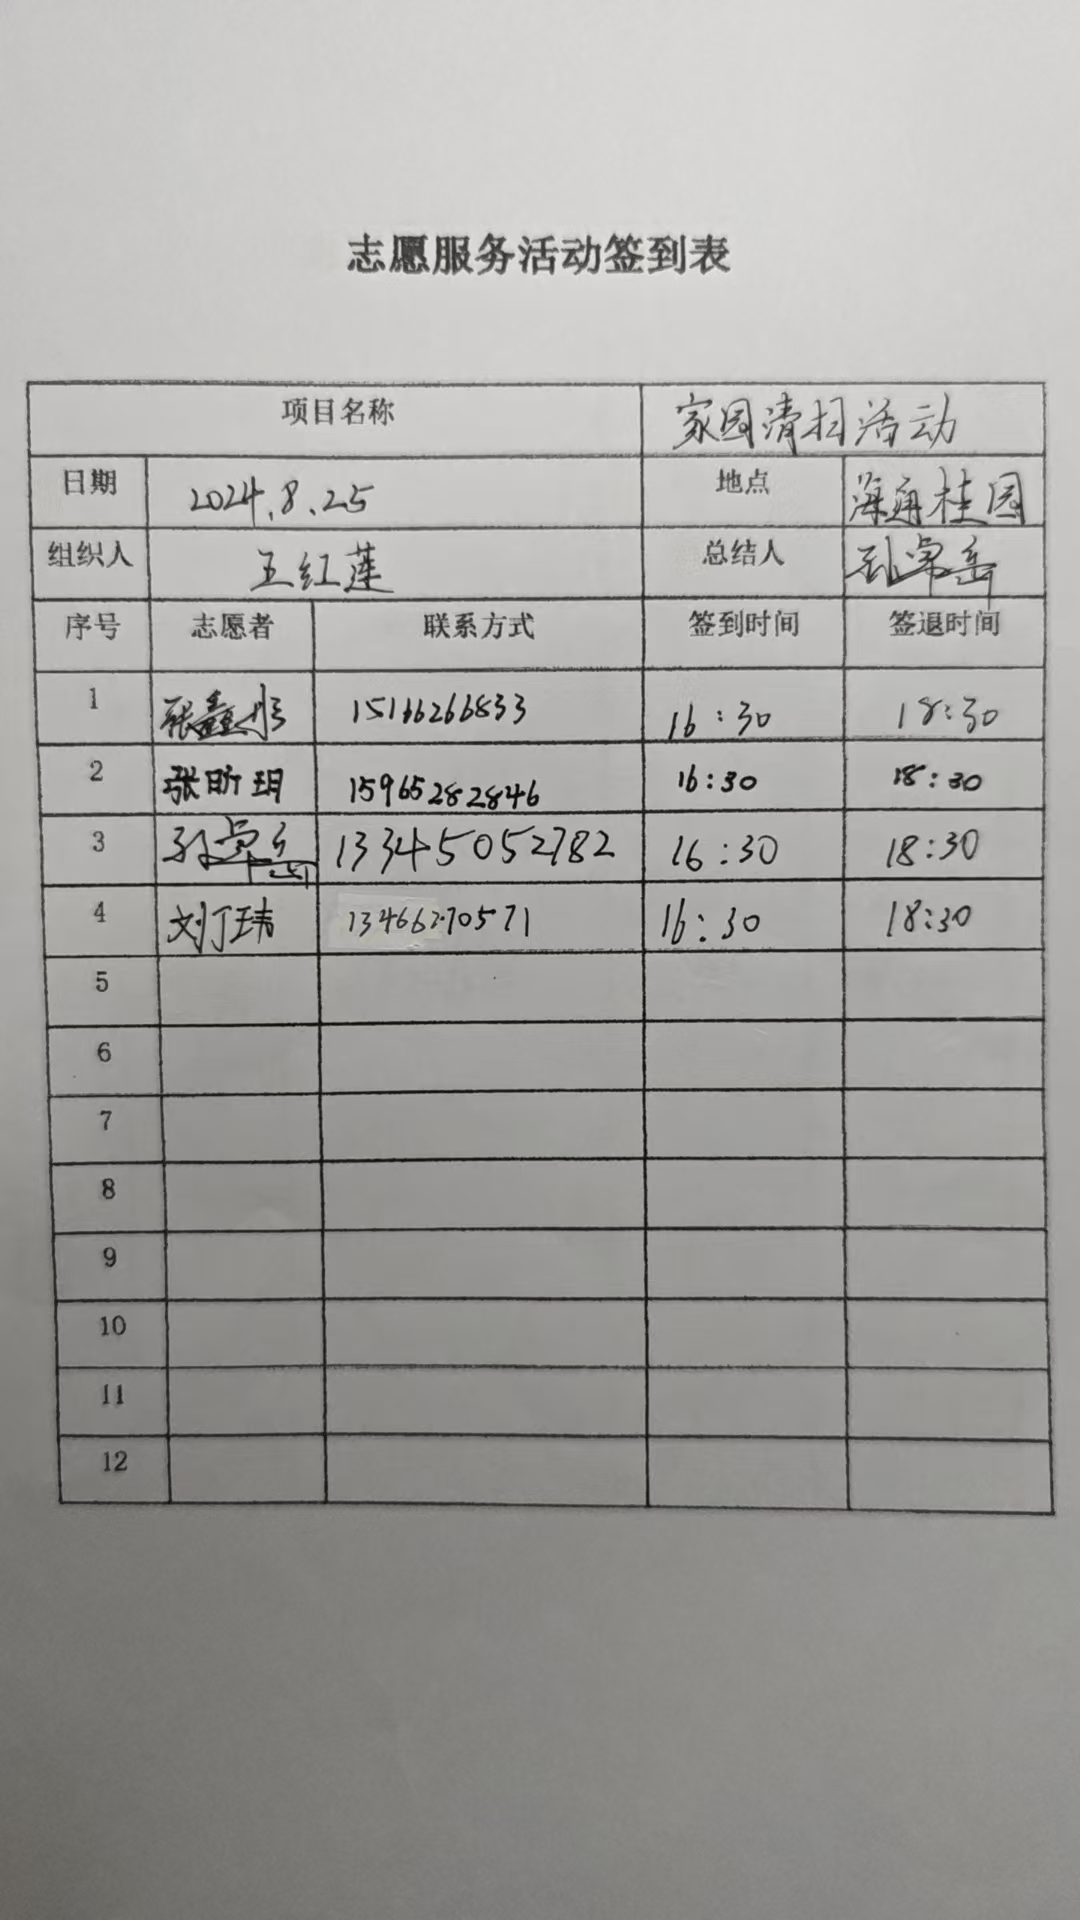 志愿服务活动签到表
项目名称 家园清扫活动
日期 2024.8.25 地点 海角桂园
组织人 王红莲 总结人 孙卓岳
序号 志愿者 联系方式 签到时间 签退时间
1 张鑫 15166266833 16:30 18:30
2 张昕玥 15965282846 16:30 18:30
3 孙卓岳 13345052782 16:30 18:30
4 刘丁玮 13466270571 16:30 18:30
5
6
7
8
9
10
11
12